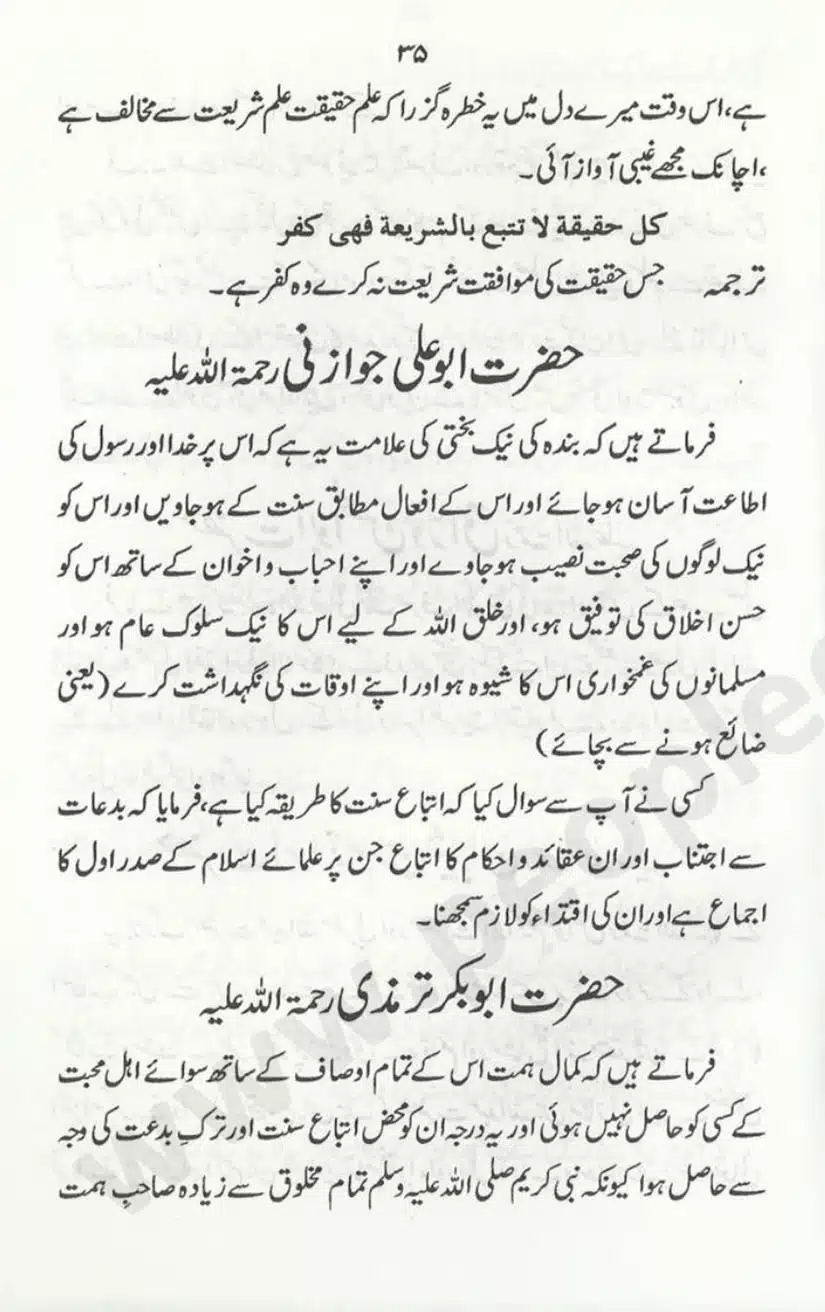 ۳۵
ہے، اس وقت میرے دل میں یہ خطرہ گزرا کہ علم حقیقت علم شریعت سے مخالف ہے
،اچانک مجھے غیبی آواز آئی۔
كل حقيقة لا تتبع بالشريعة فهى كفر
ترجمہ جس حقیقت کی موافقت شریعت نہ کرے وہ کفر ہے۔
حضرت ابو علی جوازنی رحمۃ اللہ علیہ
فرماتے ہیں کہ بندہ کی نیک بختی کی علامت یہ ہے کہ اس پر خدا اور رسول کی
اطاعت آسان ہو جائے اور اس کے افعال مطابق سنت کے ہو جاویں اور اس کو
نیک لوگوں کی صحبت نصیب ہو جاوے اور اپنے احباب و اخوان کے ساتھ اس کو
حسن اخلاق کی توفیق ہو، اور خلق اللہ کے لیے اس کا نیک سلوک عام ہو اور
مسلمانوں کی غمخواری اس کا شیوہ ہو اور اپنے اوقات کی نگہداشت کرے (یعنی
ضائع ہونے سے بچائے)
کسی نے آپ سے سوال کیا کہ اتباع سنت کا طریقہ کیا ہے، فرمایا کہ بدعات
سے اجتناب اور ان عقائد و احکام کا اتباع جن پر علمائے اسلام کے صدر اول کا
اجماع ہے اور ان کی اقتداء کو لازم سمجھنا۔
حضرت ابوبکر ترمذی رحمۃ اللہ علیہ
فرماتے ہیں کہ کمال ہمت اس کے تمام اوصاف کے ساتھ سوائے اہل محبت
کے کسی کو حاصل نہیں ہوئی اور یہ درجہ ان کو محض اتباع سنت اور ترکِ بدعت کی وجہ
سے حاصل ہوا کیونکہ نبی کریم صلی اللہ علیہ وسلم تمام مخلوق سے زیادہ صاحبِ ہمت